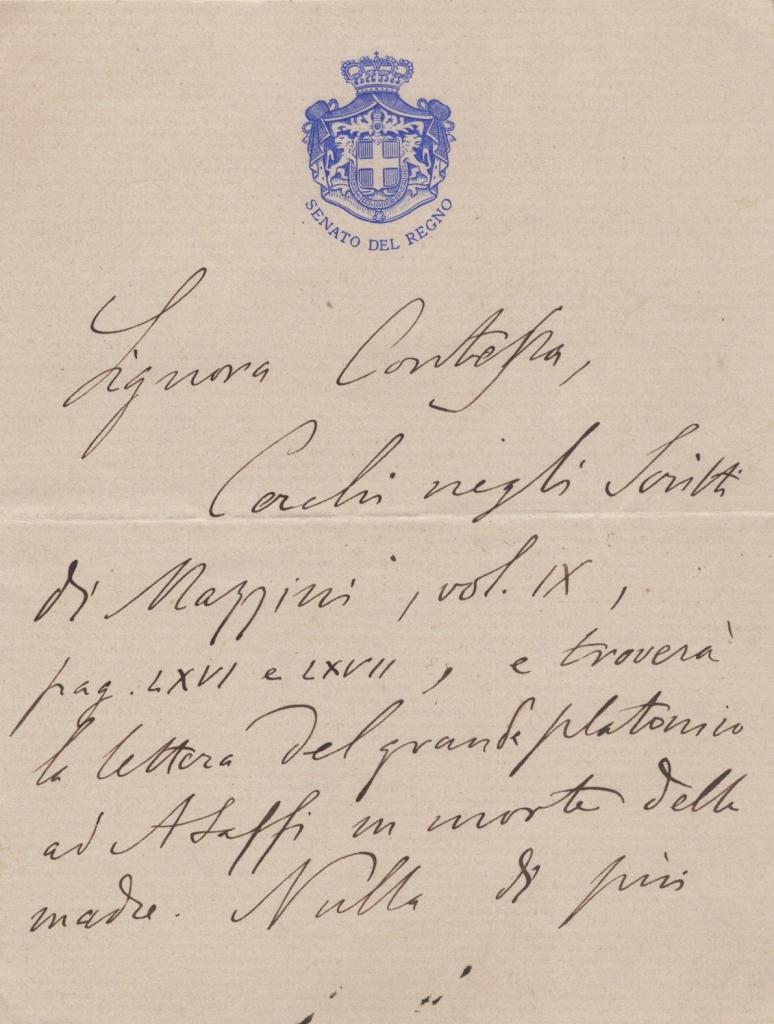 SENATO DEL REGNO
Signora Contessa,
Cerchi negli Scritti
di Mazzini, vol. IX,
pag. LXVI e LXVII, e troverà
la lettera del grande platonico
ad A Saffi in morte della
madre. Nulla di più